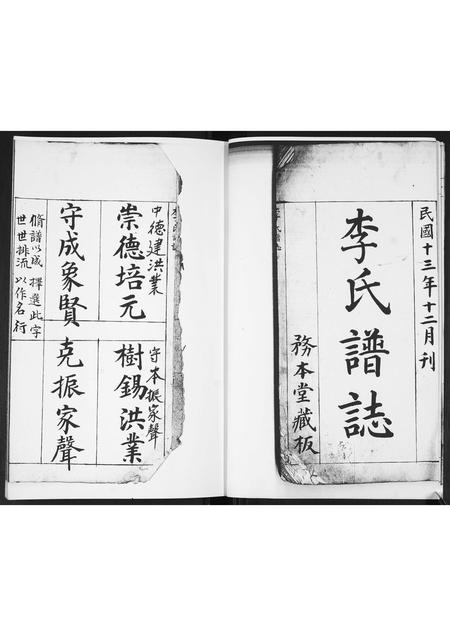 民國十三年十二月刊
李氏譜誌
務本堂藏板
中德建洪業
守本振家聲
崇德培元
樹錫洪業
守成象賢
克振家聲
脩譜以成 擇選此字
世世排流 以作名衍